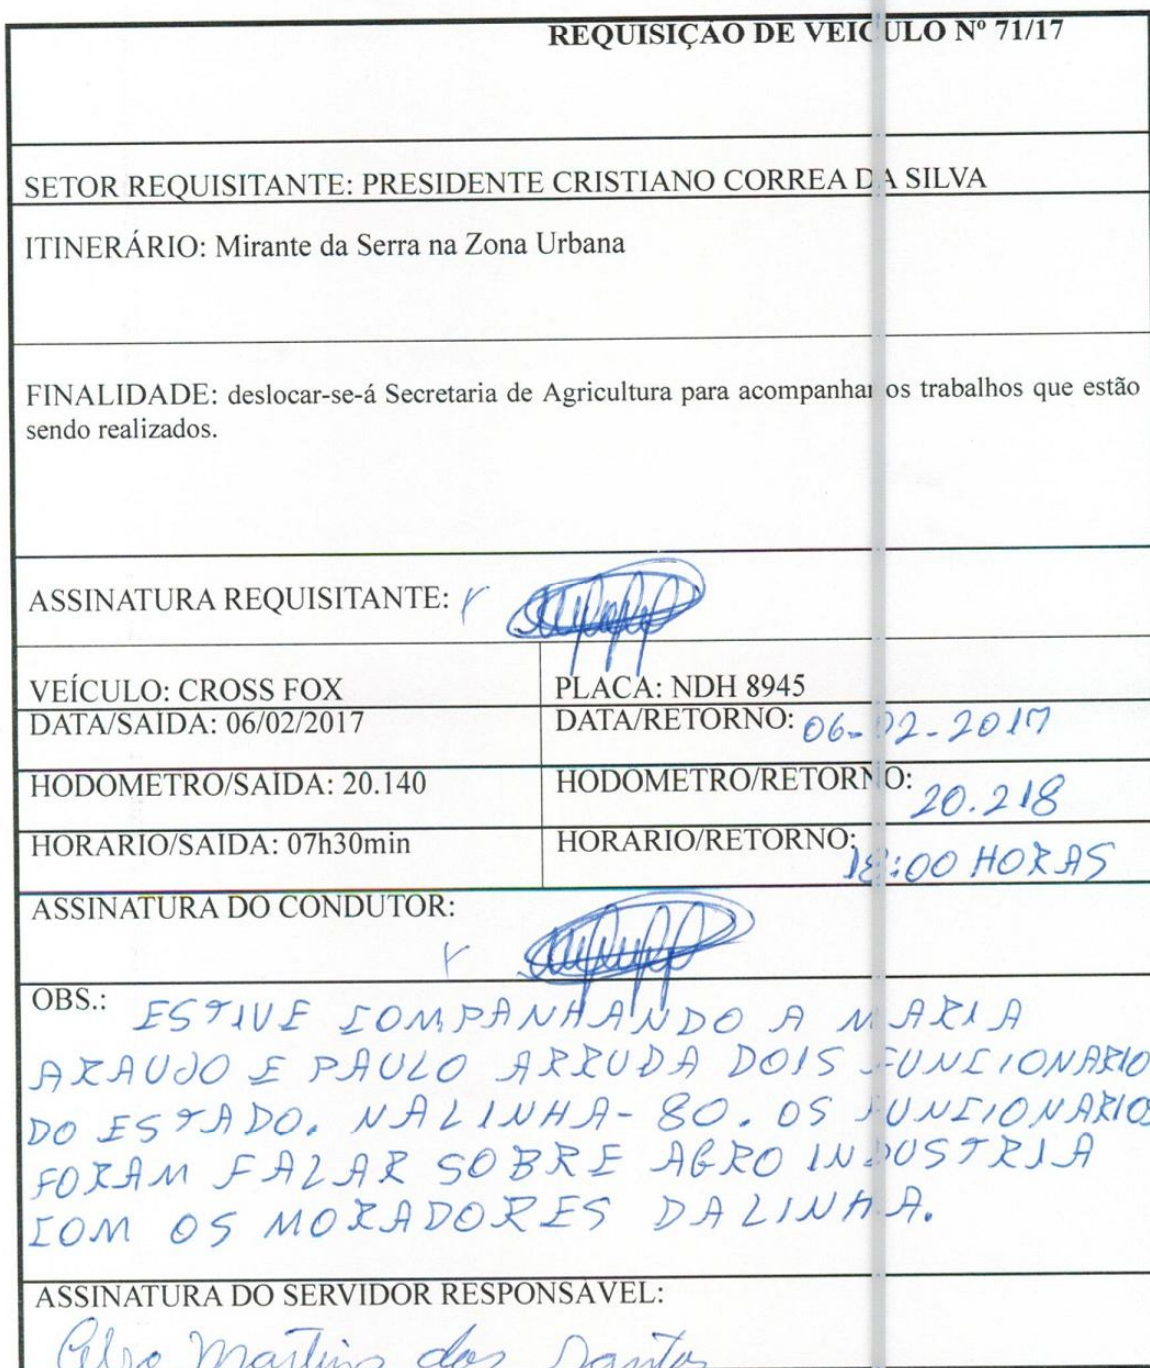 REQUISIÇÃO DE VEICULO Nº 71/17
SETOR REQUISITANTE: PRESIDENTE CRISTIANO CORREA DA SILVA
ITINERÁRIO: Mirante da Serra na Zona Urbana
FINALIDADE: deslocar-se-á Secretaria de Agricultura para acompanhar os trabalhos que estão
sendo realizados.
ASSINATURA REQUISITANTE:
VEÍCULO: CROSS FOX PLACA: NDH 8945
DATA/SAIDA: 06/02/2017 DATA/RETORNO: 06-02-2017
HODOMETRO/SAIDA: 20.140 HODOMETRO/RETORNO: 20.218
HORARIO/SAIDA: 07h30min HORARIO/RETORNO: 18:00 HORAS
ASSINATURA DO CONDUTOR:
OBS.: ESTIVE COMPANHANDO A MARIA
ARAUJO E PAULO ARRUDA DOIS FUNCIONARIO
DO ESTADO. NALINHA-80. OS FUNCIONARIOS
FORAM FALAR SOBRE AGRO INDUSTRIA
COM OS MORADORES DALINHA.
ASSINATURA DO SERVIDOR RESPONSÁVEL:
Martins dos Santos